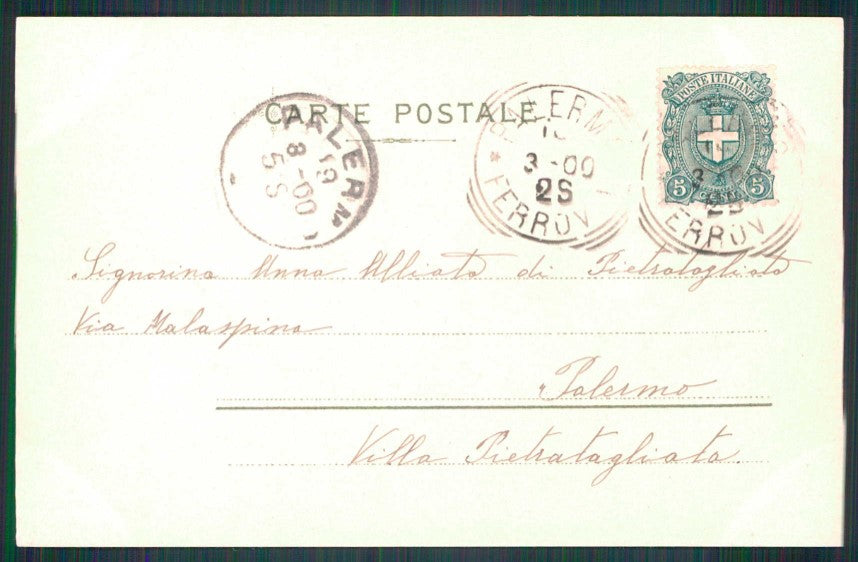 CARTE POSTALE
POSTE ITALIANE
5 CENT. 5
PALERMO
19
3-00
5 S
PALERM
3-00
2S
* FERROV
3
2S
FERROV
Signorina Anna Alliata di Pietratagliata
Via Malaspina
Palermo
Villa Pietratagliata.